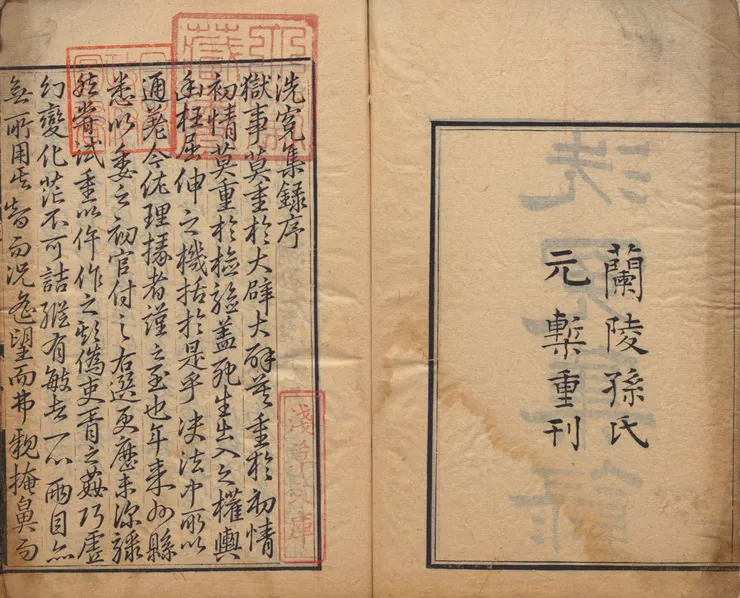 蘭陵孫氏
元槧重刊
洗寃集録序
獄事莫重於大辟大辟莫重於初情
初情莫重於檢驗蓋死生出入之權輿
幽枉屈伸之機括於是乎決法中所以
通差今佐理掾者謹之至也年來州縣
悉以委之初官付之右選更歷未深驟
然嘗試重以仵作之欺僞吏胥之姦巧虛
幻變化茫不可詰縱有敏者一心兩目亦
無所用其智而況遙望而弗親掩鼻而
淺草文庫